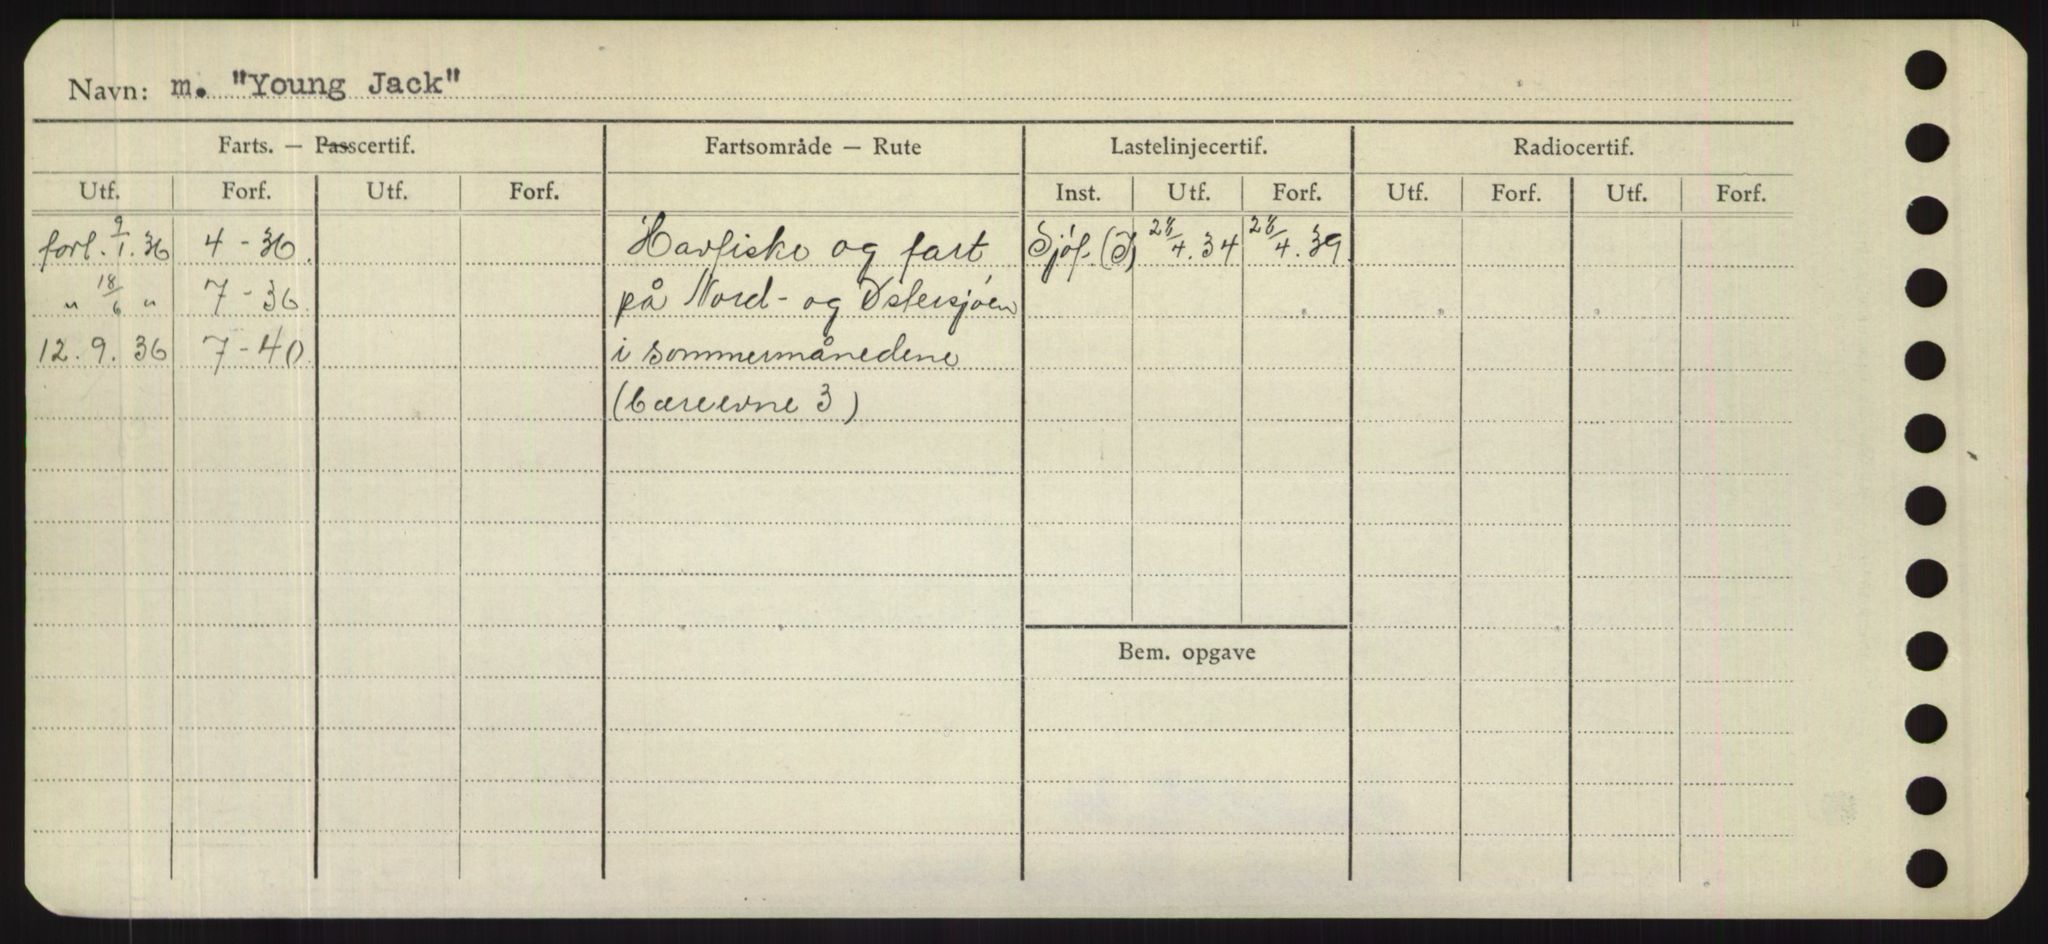 Navn: m. "Young Jack"
Farts. — Passcertif. Fartsområde — Rute Lastelinjecertif. Radiocertif.
Utf. Forf. Utf. Forf. Inst. Utf. Forf. Utf. Forf. Utf. Forf.
forl. 9/1.36 4-36. Havfiske og fart Sjöf. (I) 28/4.34 28/4.39.
" 18/6 " 7-36. på Nord- og Østersjøen
12.9.36 7-40. i sommermånedene
(bæreevne 3)
Bem. opgave